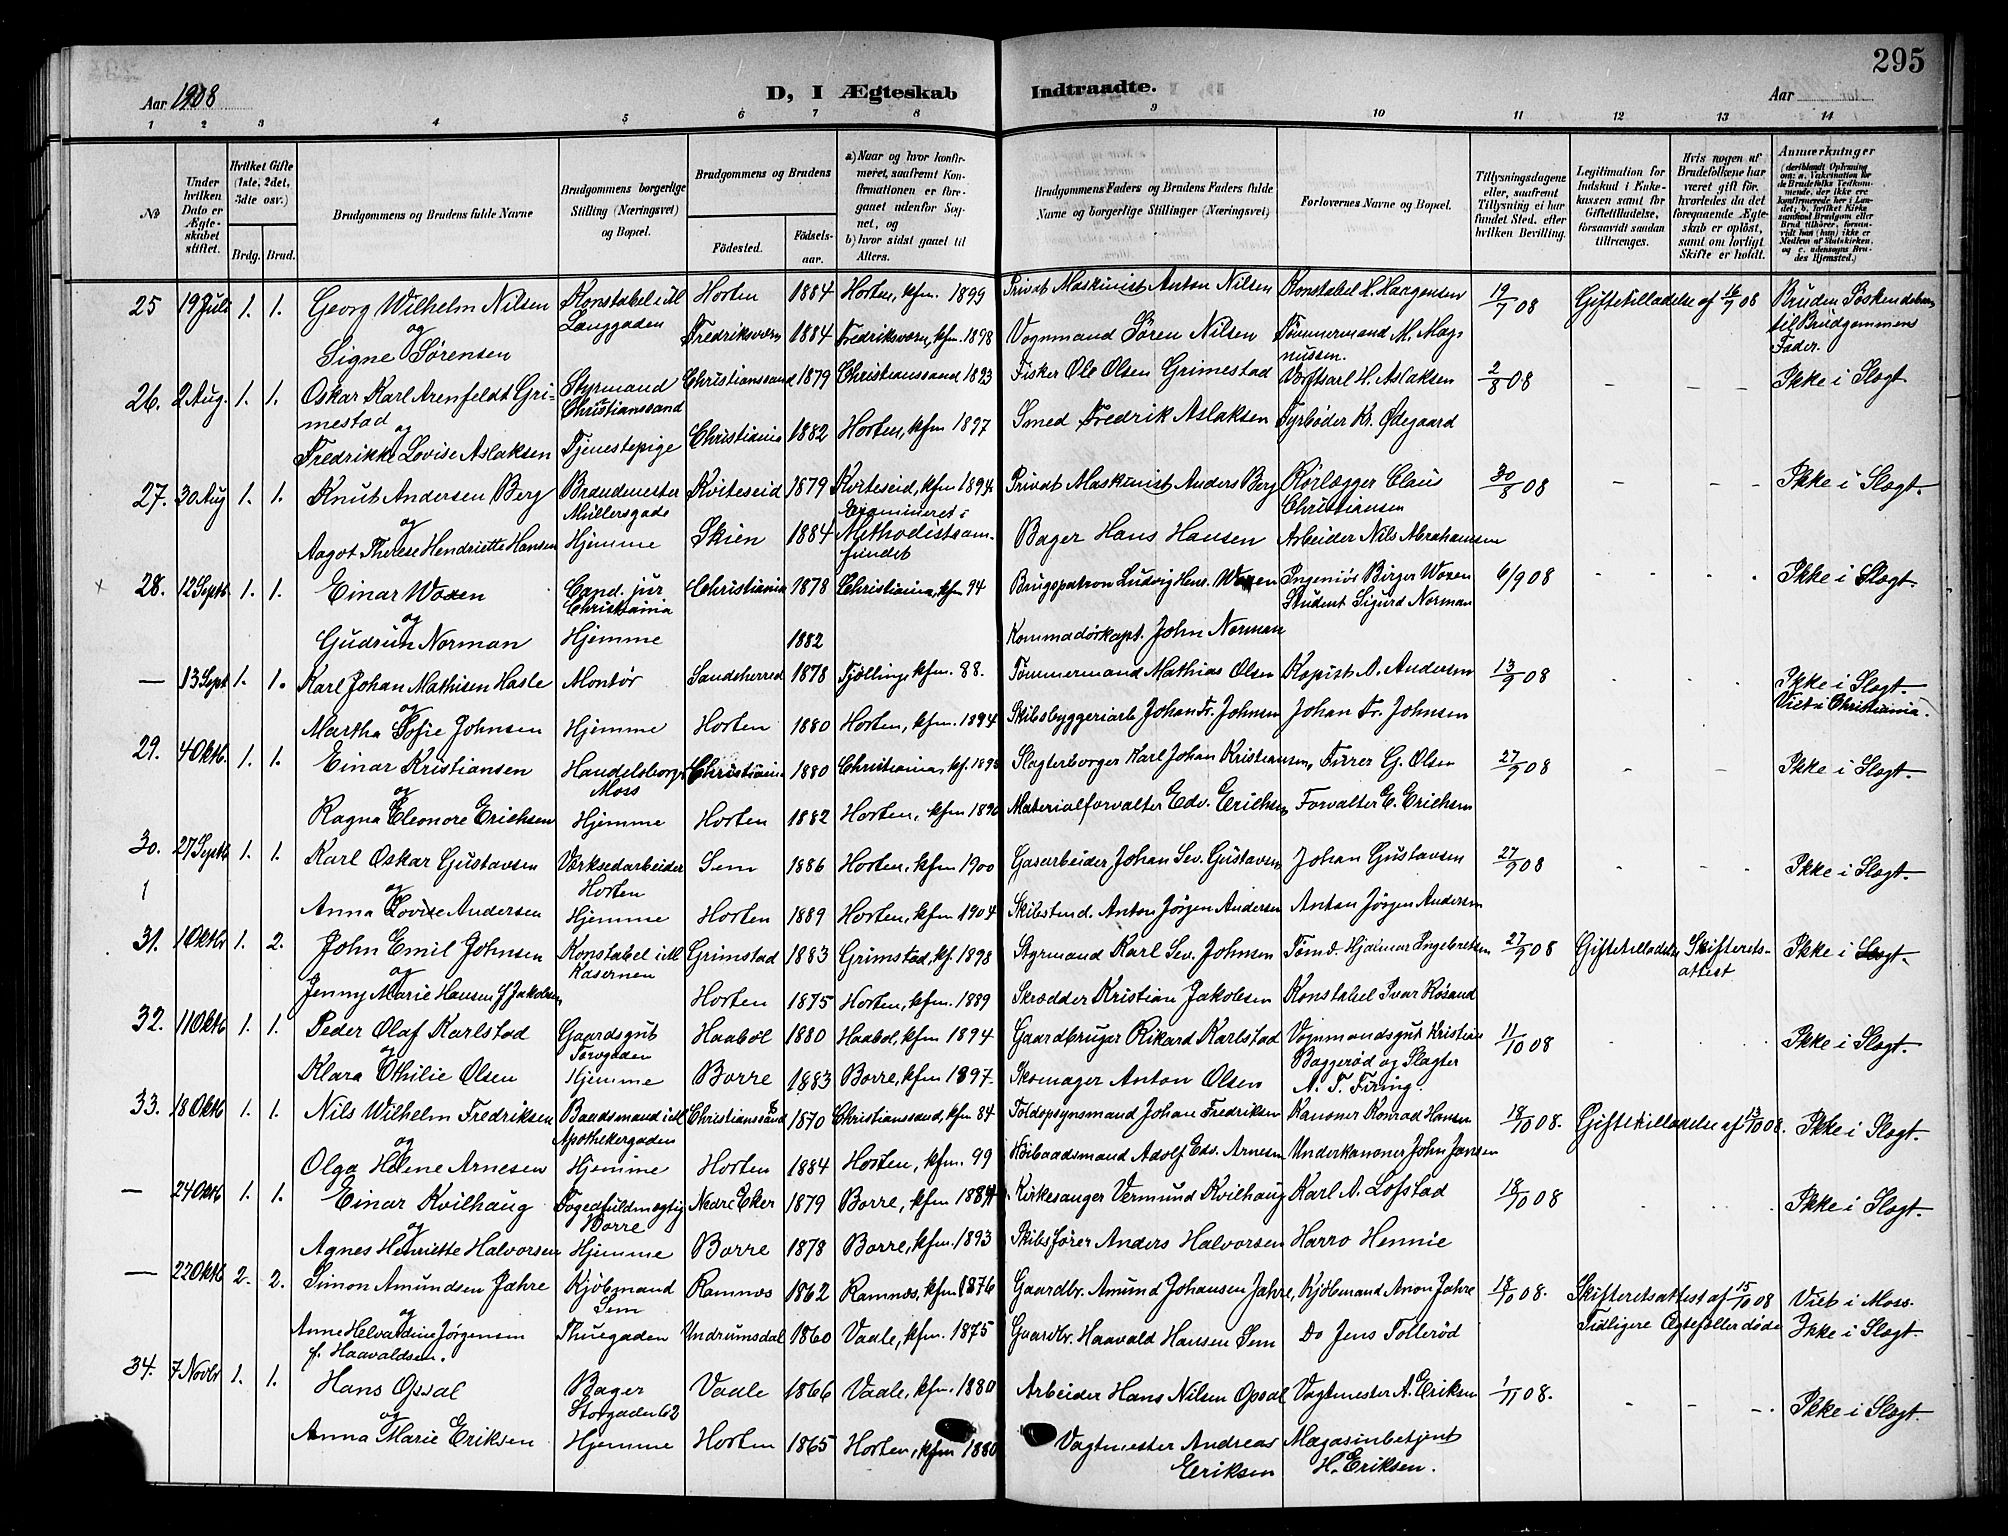 295
Aar 1908
D, I Ægteskab Indtraadte.
Aar
1 2 3 4 5 6 7 8 9 10 11 12 13 14
No
Under hvilken Dato er Ægteskabet stiftet.
Hvilket Gifte (1ste, 2det, 3die osv.)
Brdg. Brud.
Brudgommens og Brudens fulde Navne
Brudgommens borgerlige Stilling (Næringsvei) og Bopæl.
Brudgommens og Brudens
Fødested.
Fødselsaar.
a) Naar og hvor konfirmeret, saafremt Konfirmationen er foregaaet udenfor Sognet, og
b) hvor sidst gaaet til Alters.
Brudgommens Faders og Brudens Faders fulde Navne og borgerlige Stillinger (Næringsvei)
Forlovernes Navne og Bopæl.
Tillysningsdagene eller, saafremt Tillysning ei har fundet Sted, efter hvilken Bevilling.
Legitimation for Indskud i Enkekassen samt for Giftetilladelse, forsaavidt saadan tiltrænges.
Hvis nogen af Brudefolkene har været gift før, hvorledes da det foregaaende Ægteskab er opløst, samt om lovligt Skifte er holdt.
Anmærkninger
25 19 Juli 1. 1. Georg Wilhelm Nilsen Konstabel i Horten 1884 Horten, kfm. 1899 Privat Maskinist Anton Nilsen Konstabel H. Haagensen 19/7 08 Giftetilladelse af 16/7 08 Bruden Søskendebarn
og Langgaden til Brudgommens
Signe Sørensen Fredriksværn 1884 Fredriksværn, kfm. 1898 Vognmand Søren Nilsen Tømmermand M. Magnussen. Fader.
26. 2 Aug. 1. 1. Oskar Karl Arenfeldt Grimestad Styrmand Christianssand Christianssand 1879 Christianssand 1893 Fisker Ole Olsen Grimestad Værftsarb. H. Aslaksen 2/8 08 Ikke i Slægt
og
Fredrikke Lovise Aslaksen Tjenestepige Christiania 1882 Horten, kfm 1897 Smed Fredrik Aslaksen Fyrbøder K. Ødegaard
27. 30 Aug 1. 1. Knut Andersen Berg Brandmester Müllersgade Kviteseid 1879 Kviteseid, kfm 1894. Privat Maskinist Anders Berg Rørlægger Claus Christiansen 30/8 08 Ikke i Slægt.
og
Aagot Therese Hendriette Hansen Hjemme Skien 1884 Examineret i Methodistsamfundet Bager Hans Hansen Arbeider Nils Abrahamsen
28. 12 Septb 1. 1. Einar Woxen Cand. jur Christiania Christiania 1878 Christiania, kfm 94 Brugspatron Ludvig Henr. Woxen Ingeniør Birger Woxen 6/9 08 Ikke i Slægt.
og Student Sigurd Norman
Gudrun Norman Hjemme 1882 Kommadørkapt. John Norman
— 13 Sept 1. 1. Karl Johan Mathisen Hasle Montør Sandeherred 1878 Tjølling, kfm. 88. Tømmermand Mathias Olsen Kopist A. Andersen 13/9 08 Ikke i Slægt.
og Viet i Christiania.
Martha Sofie Johnsen Hjemme Horten 1880 Horten, kfm. 1894 Skibsbyggeriarb. Johan Fr. Johnsen Johan Fr. Johnsen
29. 4 Oktb. 1. 1. Einar Kristiansen Handelsborg. Moss Christiania 1880 Christiania, kf. 1895 Slagterborger Karl Johan Kristiansen, Firer G. Olsen 27/9 08 Ikke i Slægt.
og
Ragna Eleonore Erichsen Hjemme Horten 1882 Horten, kfm 1896 Materialforvalter Edv. Erichsen Forvalter E. Erichsen
30. 27 Septb 1. 1. Karl Oskar Gustavsen Værksedarbeider Horten Sem 1886 Horten, kfm 1900 Gasarbeider Johan Sev. Gustavsen Johan Gustavsen 27/9 08 Ikke i Slægt.
og
Anna Lovise Andersen Hjemme Horten 1889 Horten, kfm 1904 Skibstmd. Anton Jørgen Andersen Anton Jørgen Andersen
31. 1 Oktbr 1. 2. John Emil Johnsen Konstabel Kasernen Grimstad 1883 Grimstad, kf. 1898 Styrmand Karl Sev. Johnsen Tømd. Hjalmar Ingebretsen 27/9 08 Giftetilladelse Skifteretsattest Ikke i Slægt.
og
Jenny Marie Hansen f. Jakobsen Horten 1875 Horten, kfm. 1889 Skrædder Kristian Jakobsen Konstabel Ivar Røsand
32. 11 Oktb 1. 1. Peder Olaf Karlstad Gaardsgut Torvgaden Haabøl 1880 Haabøl, kfm 1894 Gaardbruger Rikard Karlstad Vognmandsgut Kristian 11/10 08 Ikke i Slægt.
og Baggerød og Slagter
Klara Othilie Olsen Hjemme Borre 1883 Borre, kfm 1897. Skomager Anton Olsen A. T. Firing.
33. 18 Oktb 1. 1. Nils Wilhelm Fredriksen Baadsmand Apothekergaden Christianssand 1870 Christianssand, kfm 84 Toldopsynsmand Johan Fredriksen Kanoner Konrad Hansen 18/10 08. Giftetilladelse af 13/10 08. Ikke i Slægt.
og
Olga Helene Arnesen Hjemme Horten 1884 Horten, kfm. 99 Høibaadsmand Adolf Edv. Arnesen Underkanoner John Jansen
— 24 Oktb 1. 1. Einar Kvilhaug Fogedfuldmægtig Borre Nedre Eker 1879 Borre, kfm 1894 Kirkesanger Vermund Kvilhaug Karl A. Lofstad 18/10 08 Ikke i Slægt.
og
Agnes Henriette Halvorsen Hjemme Borre 1878 Borre, kfm. 1893 Skibsfører Anders Halvorsen Harro Hennie
— 22 Oktb 2. 2. Simon Amundsen Jahre Kjøbmand Sem Ramnæs 1862 Ramnæs, kfm 1876 Gaardbr. Amund Johansen Jahre, Kjøbmand Anon Jahre 18/10 08. Skifteretsattest af 15/10 08 Viet i Moss.
og Tidligere Ægtefæller døde Ikke i Slægt.
Anne Helvardine Jørgensen f. Haavaldsen. Thuegaden Undrumsdal 1860 Vaale, kfm. 1875 Gaardbr. Haavald Hansen Sem Do Jens Tollerød
34. 7 Novbr 1. 1. Hans Opsal Bager Storgaden 62 Vaale 1866 Vaale, kfm. 1880 Arbeider Hans Nilsen Opsal Vagtmester A. Eriksen 1/11 08. Ikke i Slægt.
og
Anna Marie Eriksen Hjemme Horten 1865 Horten, kfm 1880 Vagtmester Andreas Eriksen Magasinbetjent H. Eriksen.